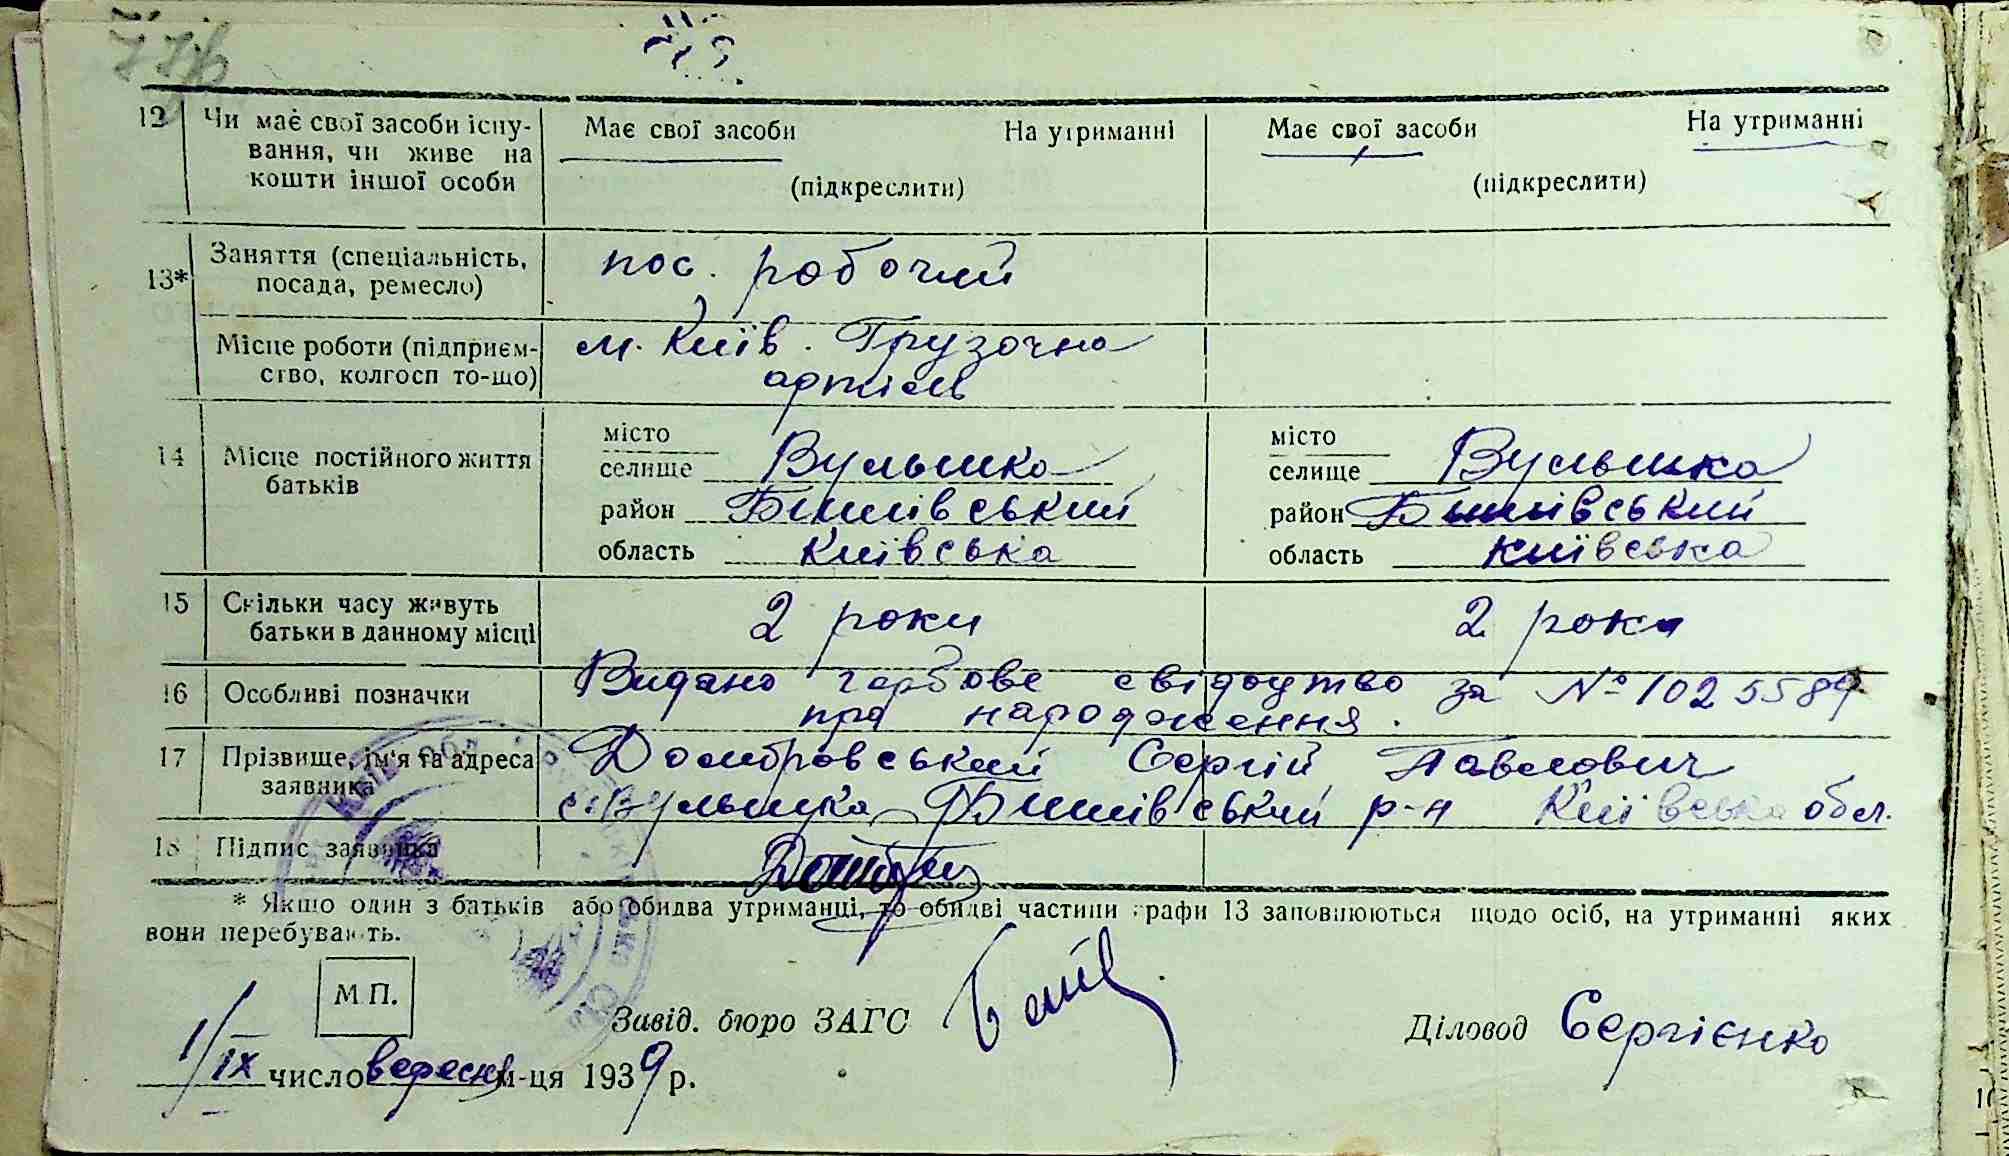 12 Чи має свої засоби існу-вання, чи живе на кошти іншої особи
Має свої засоби На утриманні
(підкреслити)
Має свої засоби На утриманні
(підкреслити)
13* Заняття (спеціальність, посада, ремесло)
пос. робочий
Місце роботи (підприєм-ство, колгосп то-що)
м. Київ. Грузочна
артіль
14 Місце постійного життя батьків
місто
селище Вульшка
район Бишівський
область Київська
місто
селище Вульшка
район Бишівський
область Київська
15 Скільки часу живуть батьки в данному місці
2 роки
2 роки
16 Особливі позначки
Видано гербове свідоцтво за № 1025589
про народження.
17 Прізвище, ім'я та адреса заявника
Домбровський Сергій Павлович
с. Вульшка Бишівський р-н Київська обл.
18 Підпис заявника
* Якщо один з батьків або обидва утриманці, то обидві частини графи 13 заповнюються щодо осіб, на утриманні яких
вони перебувають.
М П.
Завід. бюро ЗАГС
Діловод Сергієнко
1/IX число вересня м-ця 1939 р.